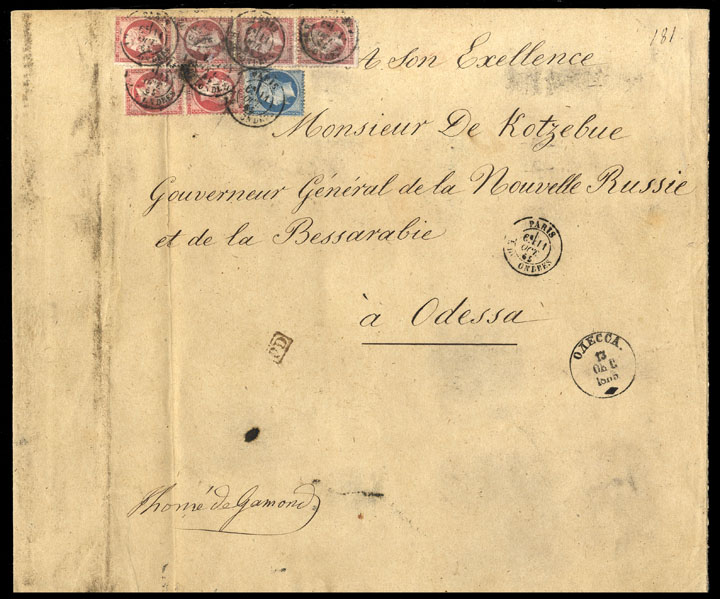 181
A son Exellence
Monsieur De Kotzebue
Gouverneur Général de la Nouvelle Russie
et de la Bessarabie
à Odessa
PARIS
6E 11
OCT.
65
R. DE LONDRES
ОДЕССА.
13
ОК
PD
Thomé de Gamond